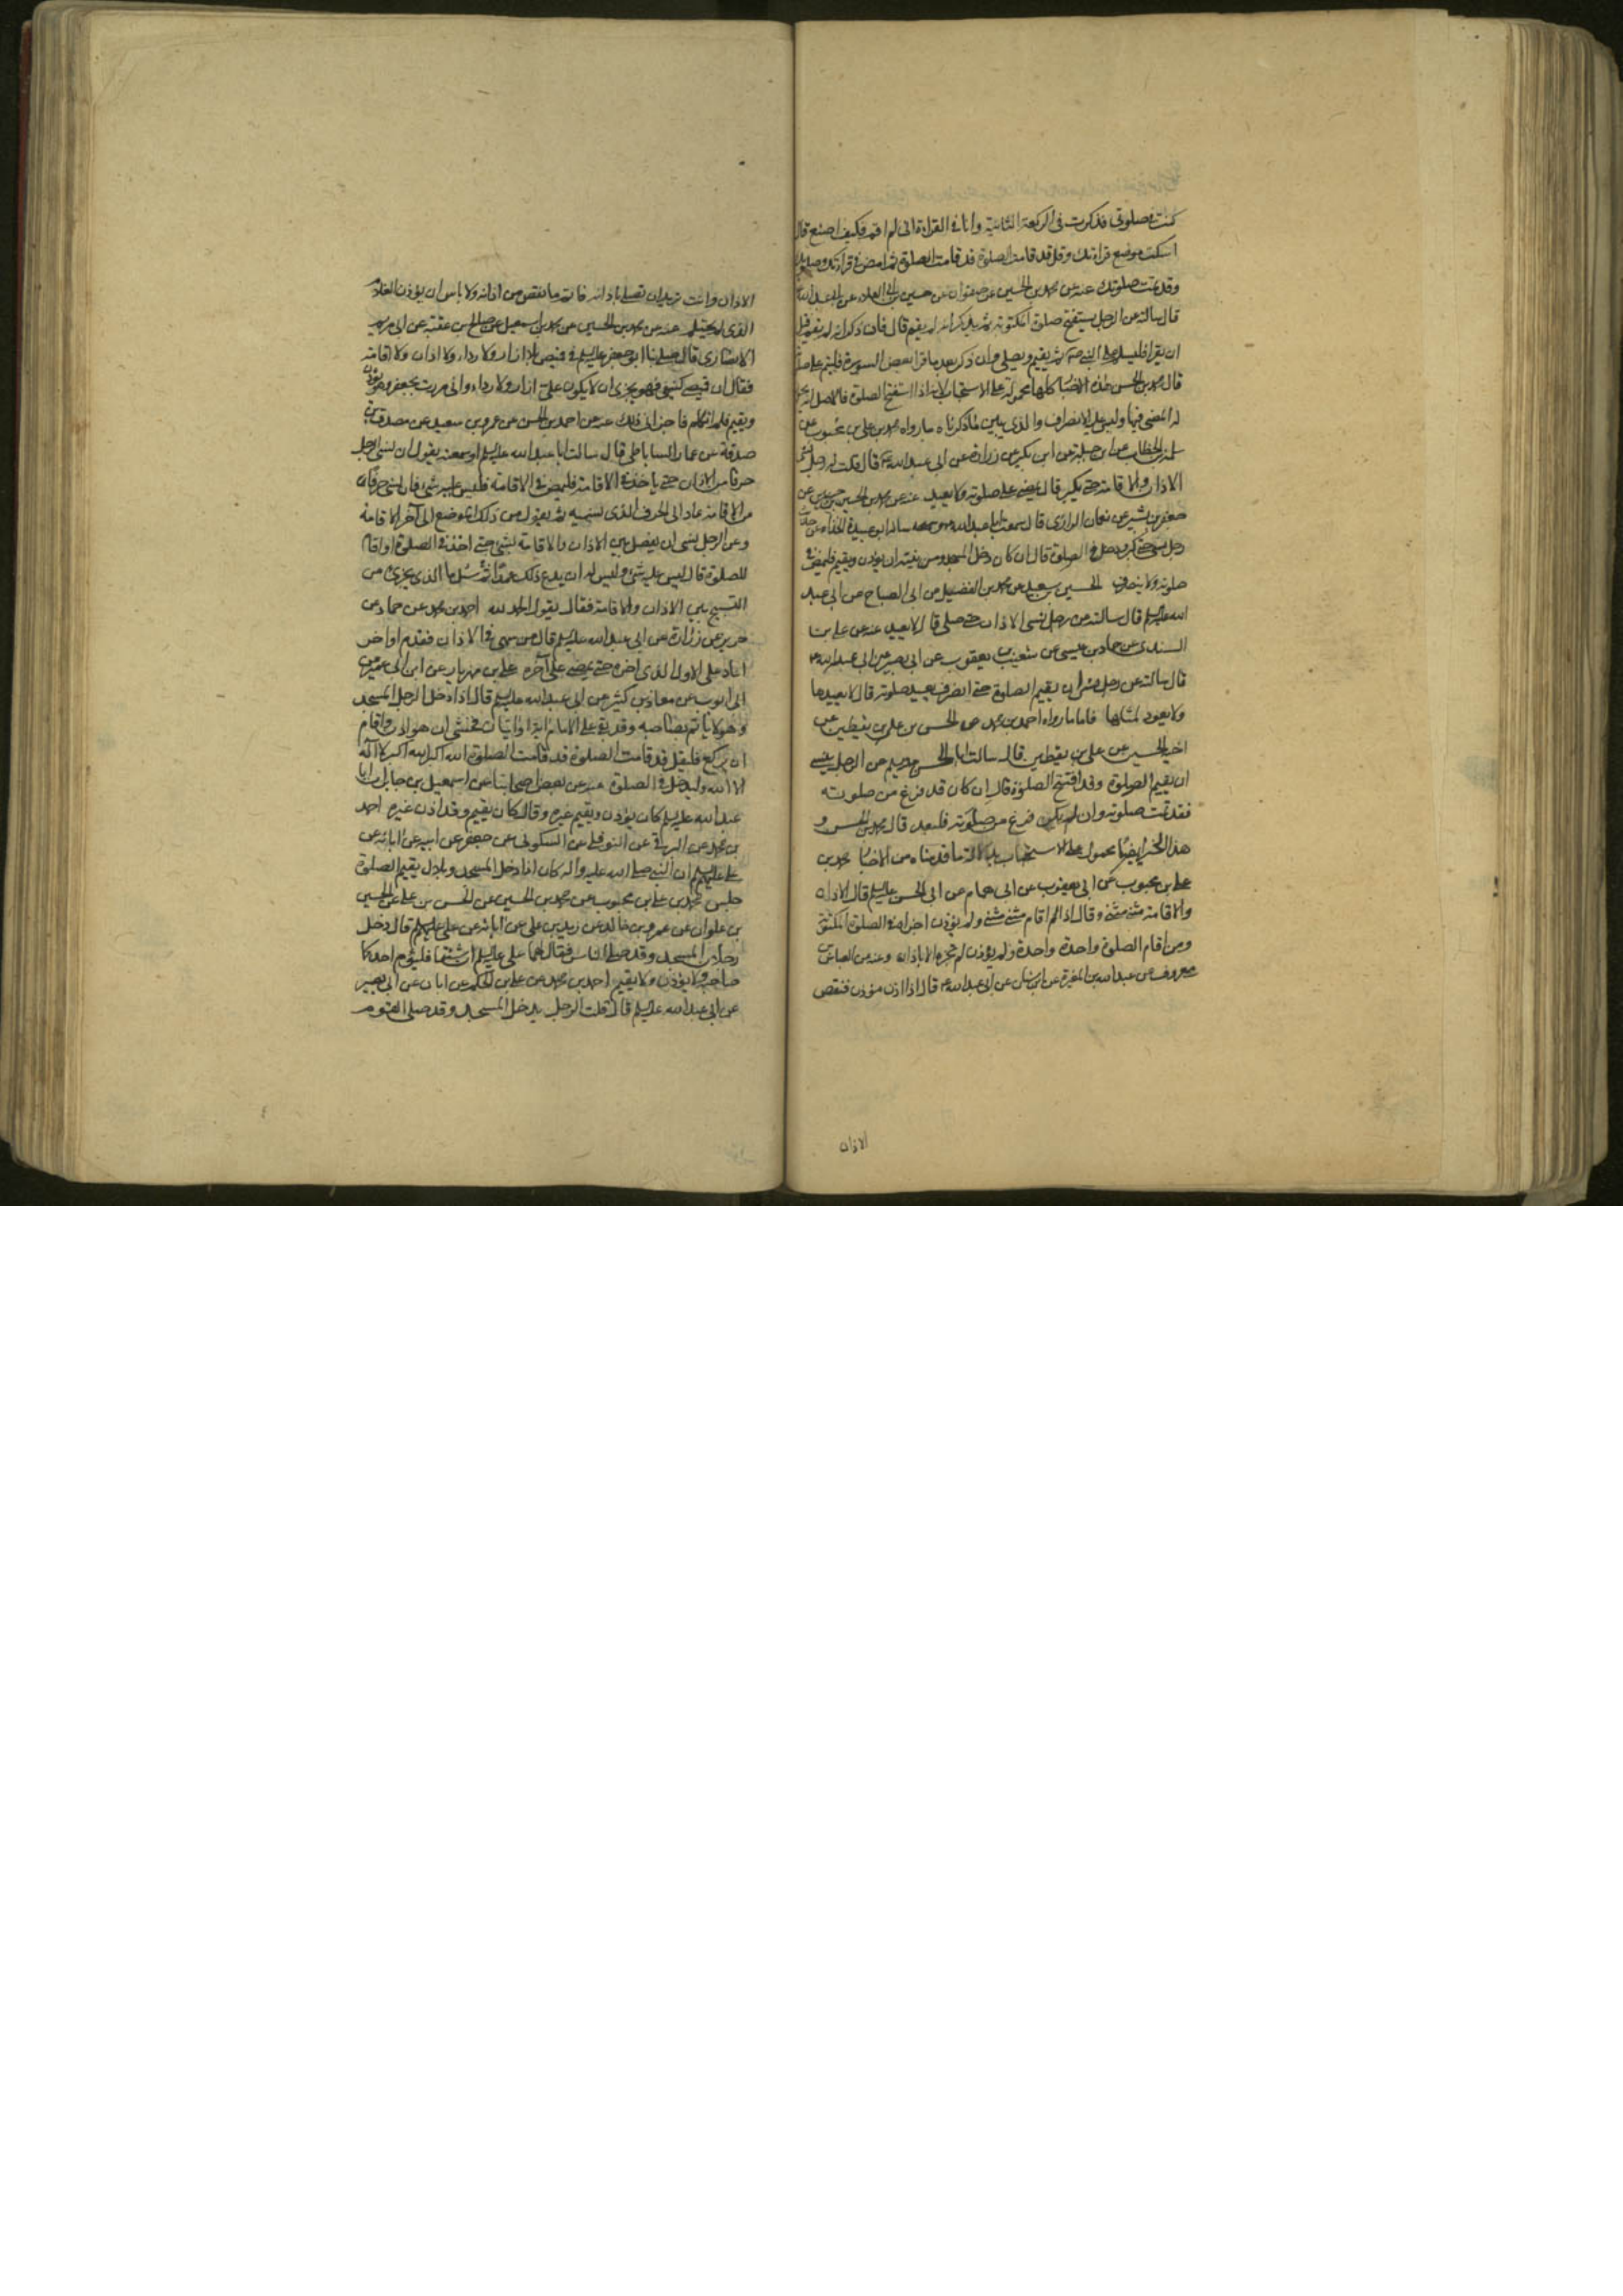 كنت في صلوتي فذكرت في الركعة الثانية وانا في القراءة اني لم اقم فكيف اصنع قال
اسكت موضع قراءتك وقل قد قامت الصلوة قد قامت الصلوة ثم امض في قراءتك وصلوتك
وقد تمت صلوتك عنه عن محمد بن الحسين عن صفوان عن حسين بن ابي العلاء عن ابي عبد الله
قال سالته عن الرجل يستفتح صلوة المكتوبة ثم يذكر انه لم يقم قال فان ذكر انه لم يقم قبل
ان يقرا فليسلم على النبي ص ثم يقيم ويصلي وان ذكر بعد ما قرا بعض السورة فليتم على صلوته
قال محمد بن الحسن هذه الاخبار كلها محمولة على الاستحباب لانه اذا استفتح الصلوة فالاصل انه يجوز
له المضي فيها وليس عليه الانصراف والذي يبين ما ذكرناه ما رواه محمد بن علي بن محبوب عن
سلمة بن الخطاب عن ابي جميلة عن ابن بكير عن زرارة عن ابي عبد الله ع قال قلت له رجل ينسى
الاذان والاقامة حتى يكبر قال يمضي على صلوته ولا يعيد عنه عن محمد بن الحسين عن
جعفر بن بشير عن نعمان الرازي قال سمعت ابا عبد الله ع وساله ابو عبيدة الحذاء عن حديث
رجل نسي حتى كبر ودخل في الصلوة قال ان كان دخل المسجد ومن نيته ان يؤذن ويقيم فليمض في
صلوته ولا ينصرف الحسين بن سعيد عن محمد بن الفضيل عن ابي الصباح عن ابي عبد
الله عليه السلم قال سالته عن رجل نسي الاذان حتى صلى قال لا يعيد عنه عن علي بن
السندي عن حماد بن عيسى عن شعيب بن يعقوب عن ابي بصير عن ابي عبد الله ع
قال سالته عن رجل نسي ان يقيم الصلوة حتى انصرف يعيد صلوته قال لا يعيدها
ولا يعود لمثلها فاما ما رواه احمد بن محمد عن الحسن بن علي بن يقطين عن
اخيه الحسين عن علي بن يقطين قال سالت ابا الحسن عليه السلم عن الرجل ينسى
ان يقيم الصلوة وقد افتتح الصلوة قال ان كان قد فرغ من صلوته
فقد تمت صلوته وان لم يكن فرغ من صلوته فليعد قال محمد بن الحسن و
هذا الخبر ايضا محمول على الاستحباب بدلالة ما قدمناه من الاخبار محمد بن
علي بن محبوب عن ابي يعقوب عن ابي همام عن ابي الحسن عليه السلم قال الاذان
والاقامة مثنى مثنى وقال اذا اقام مثنى مثنى ولم يؤذن اجزاه في الصلوة المكتوبة
ومن اقام الصلوة واحدة واحدة ولم يؤذن لم تجزه الا باذان وعنه عن العباس بن
معروف عن عبد الله بن المغيرة عن ابن سنان عن ابي عبد الله ع قال اذا اذن مؤذن فنقص
الاذان
الاذان وانت تريد ان تصلي باذانه فاتم ما نقص من اذانه ولا باس ان يؤذن الغلام
الذي لم يحتلم عنه عن محمد بن الحسين عن محمد بن اسمعيل عن صالح بن عقبة عن ابي مريم
الانصاري قال صلى بنا ابو جعفر عليه السلم في قميص بلا ازار ولا رداء ولا اذان ولا اقامة
فقال ان قميصي كثيف فهو يجزي ان لا يكون علي ازار ولا رداء واني مررت بجعفر وهو يؤذن
ويقيم فلم اتكلم فاجزاني ذلك عنه عن احمد بن الحسن عن عمرو بن سعيد عن مصدق بن
صدقة عن عمار الساباطي قال سالت ابا عبد الله عليه السلم او سمعته يقول ان نسي الرجل
حرفا من الاذان حتى ياخذ في الاقامة فليمض في الاقامة فليس عليه شئ فان نسي حرفا
من الاقامة عاد الى الحرف الذي نسيه ثم يقول من ذلك الموضع الى آخر الاقامة
وعن الرجل نسي ان يفصل بين الاذان والاقامة بشئ حتى اخذ في الصلوة او اقام
للصلوة قال ليس عليه شئ وليس له ان يدع ذلك عمدا ثم سئل ما الذي يجزي من
التسبيح بين الاذان والاقامة فقال يقول الحمد لله احمد بن محمد عن حماد عن
حريز عن زرارة عن ابي عبد الله عليه السلم قال من سهى في الاذان فقدم او اخر
اعاد على الاول الذي اخره حتى يمضي على آخره علي بن مهزيار عن ابن ابي عمير عن
ابي ايوب عن معاذ بن كثير عن ابي عبد الله عليه السلم قال اذا دخل الرجل المسجد
وهو لا ياتم بصاحبه وقد بقي على الامام آية او آيتان فخشي ان هو اذن واقام
ان يركع فليقل قد قامت الصلوة قد قامت الصلوة الله اكبر الله اكبر لا اله
الا الله وليدخل في الصلوة عنه عن بعض اصحابنا عن اسمعيل بن جابر ان ابا
عبد الله عليه السلم كان يؤذن ويقيم غيره وقال كان يقيم وقد اذن غيره احمد
بن محمد عن البرقي عن النوفلي عن السكوني عن جعفر عن ابيه عن ابائه عن
علي عليهم السلم ان النبي صلى الله عليه وآله كان اذا دخل المسجد وبلال يقيم الصلوة
جلس محمد بن علي بن محبوب عن محمد بن الحسين عن الحسن بن علي عن الحسين
بن علوان عن عمرو بن خالد عن زيد بن علي عن ابائه عن علي عليهم السلم قال دخل
رجلان المسجد وقد صلى الناس فقال لهما علي عليه السلم ان شئتما فليؤم احدكما
صاحبه ولا يؤذن ولا يقيم احمد بن محمد عن علي بن الحكم عن ابان عن ابي بصير
عن ابي عبد الله عليه السلم قال قلت الرجل يدخل المسجد وقد صلى القوم